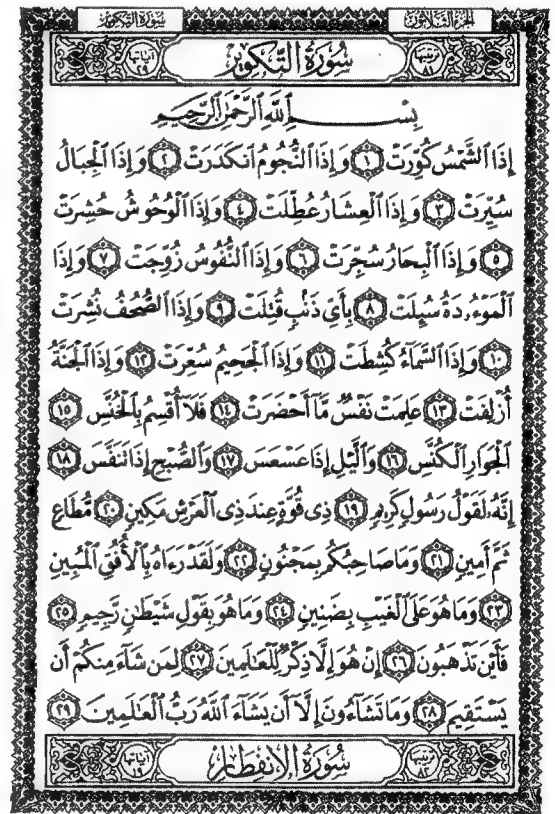 الجزء الثلاثون سورة التكوير
ترتيبها ٨١ سُورَةُ التَّكْوِيرِ آياتها ٢٩
بِسْمِ اللَّهِ الرَّحْمَٰنِ الرَّحِيمِ
إِذَا ٱلشَّمْسُ كُوِّرَتْ ١ وَإِذَا ٱلنُّجُومُ ٱنكَدَرَتْ ٢ وَإِذَا ٱلْجِبَالُ
سُيِّرَتْ ٣ وَإِذَا ٱلْعِشَارُ عُطِّلَتْ ٤ وَإِذَا ٱلْوُحُوشُ حُشِرَتْ
٥ وَإِذَا ٱلْبِحَارُ سُجِّرَتْ ٦ وَإِذَا ٱلنُّفُوسُ زُوِّجَتْ ٧ وَإِذَا
ٱلْمَوْءُۥدَةُ سُئِلَتْ ٨ بِأَىِّ ذَنۢبٍ قُتِلَتْ ٩ وَإِذَا ٱلصُّحُفُ نُشِرَتْ
١٠ وَإِذَا ٱلسَّمَآءُ كُشِطَتْ ١١ وَإِذَا ٱلْجَحِيمُ سُعِّرَتْ ١٢ وَإِذَا ٱلْجَنَّةُ
أُزْلِفَتْ ١٣ عَلِمَتْ نَفْسٌ مَّآ أَحْضَرَتْ ١٤ فَلَآ أُقْسِمُ بِٱلْخُنَّسِ ١٥
ٱلْجَوَارِ ٱلْكُنَّسِ ١٦ وَٱلَّيْلِ إِذَا عَسْعَسَ ١٧ وَٱلصُّبْحِ إِذَا تَنَفَّسَ ١٨
إِنَّهُۥ لَقَوْلُ رَسُولٍ كَرِيمٍ ١٩ ذِى قُوَّةٍ عِندَ ذِى ٱلْعَرْشِ مَكِينٍ ٢٠ مُّطَاعٍ
ثَمَّ أَمِينٍ ٢١ وَمَا صَاحِبُكُم بِمَجْنُونٍ ٢٢ وَلَقَدْ رَءَاهُ بِٱلْأُفُقِ ٱلْمُبِينِ
٢٣ وَمَا هُوَ عَلَى ٱلْغَيْبِ بِضَنِينٍ ٢٤ وَمَا هُوَ بِقَوْلِ شَيْطَٰنٍ رَّجِيمٍ ٢٥
فَأَيْنَ تَذْهَبُونَ ٢٦ إِنْ هُوَ إِلَّا ذِكْرٌ لِّلْعَٰلَمِينَ ٢٧ لِمَن شَآءَ مِنكُمْ أَن
يَسْتَقِيمَ ٢٨ وَمَا تَشَآءُونَ إِلَّآ أَن يَشَآءَ ٱللَّهُ رَبُّ ٱلْعَٰلَمِينَ ٢٩
ترتيبها ٨٢ سُورَةُ الِانفِطَارِ آياتها ١٩